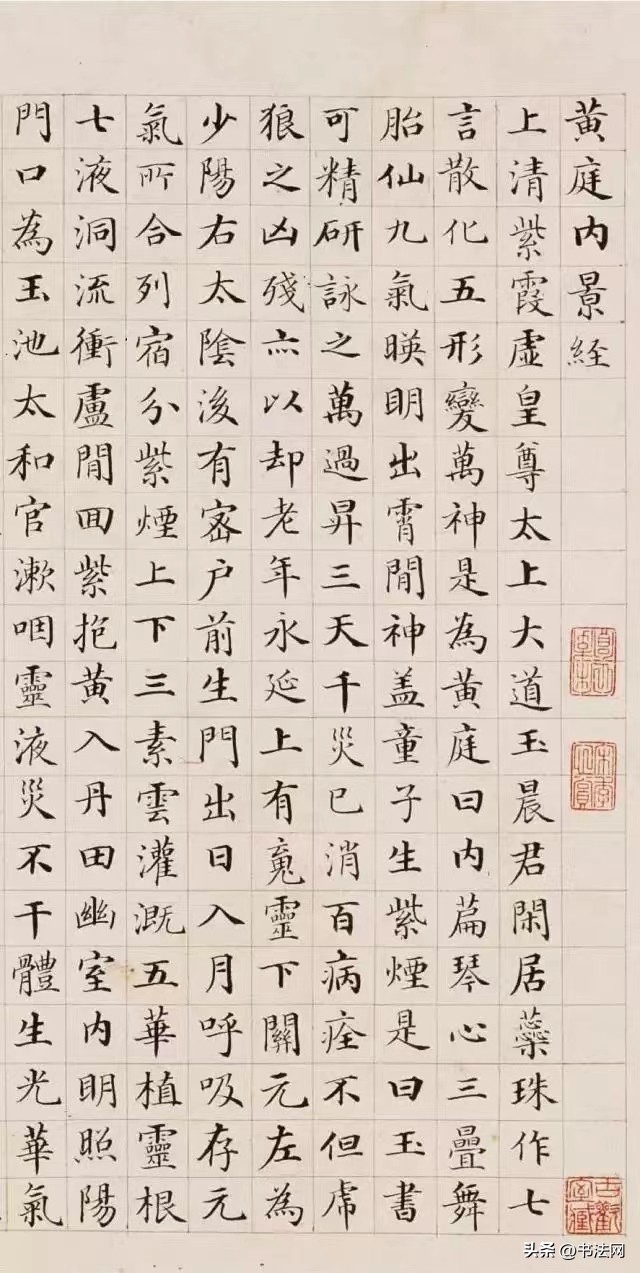 黄庭内景経
上清紫霞虛皇尊太上大道玉晨君閑居蘂珠作七
言散化五形變萬神是為黃庭曰内篇琴心三疊舞
胎仙九氣暎明出霄閒神盖童子生紫煙是曰玉書
可精研詠之萬過昇三天千災已消百病痊不但虎
狼之凶殘亦以却老年永延上有䰟靈下關元左為
少陽右太陰後有密户前生門出日入月呼吸存元
氣所合列宿分紫煙上下三素雲灌溉五華植靈根
七液洞流衝盧閒回紫抱黃入丹田幽室内明照陽
門口為玉池太和官漱咽靈液災不干體生光華氣
头条 @书法网